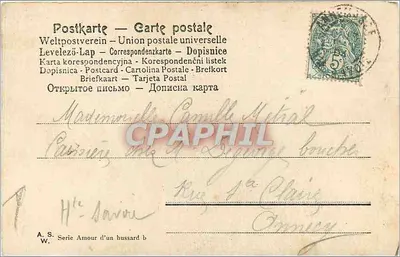 Postkarte — Carte postale
Weltpostverein — Union postale universelle
Levelező-Lap — Correspondenzkarte — Dopisnice
Karta korespondencyjna — Korespondenční listek
Dopisnica — Postcard — Cartolina Postale — Brefkort
Briefkaart — Tarjeta Postal
Открытое письмо — Дописна карта
Mademoiselle Camille Métral
Caissière chez M Degeorge boucher
Rue Ste Claire
Annecy
Hte Savoie
CPAPHIL
A. S.
W. Serie Amour d'un hussard b